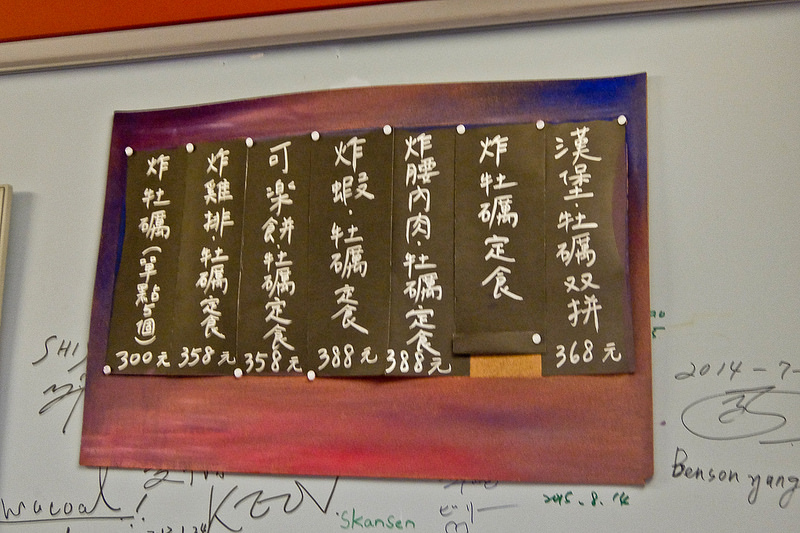 漢堡·牡礪双拼
368元
炸牡礪定食
炸腰內肉·牡礪定食
388元
炸蝦·牡礪定食
388元
可楽餅·牡礪定食
358元
炸雞排·牡礪定食
358元
炸牡礪(單點5個)
300元
SHI
2014-7-
Benson yang
wacoal!
KEN
Skansen
ビリー
2015.8.14